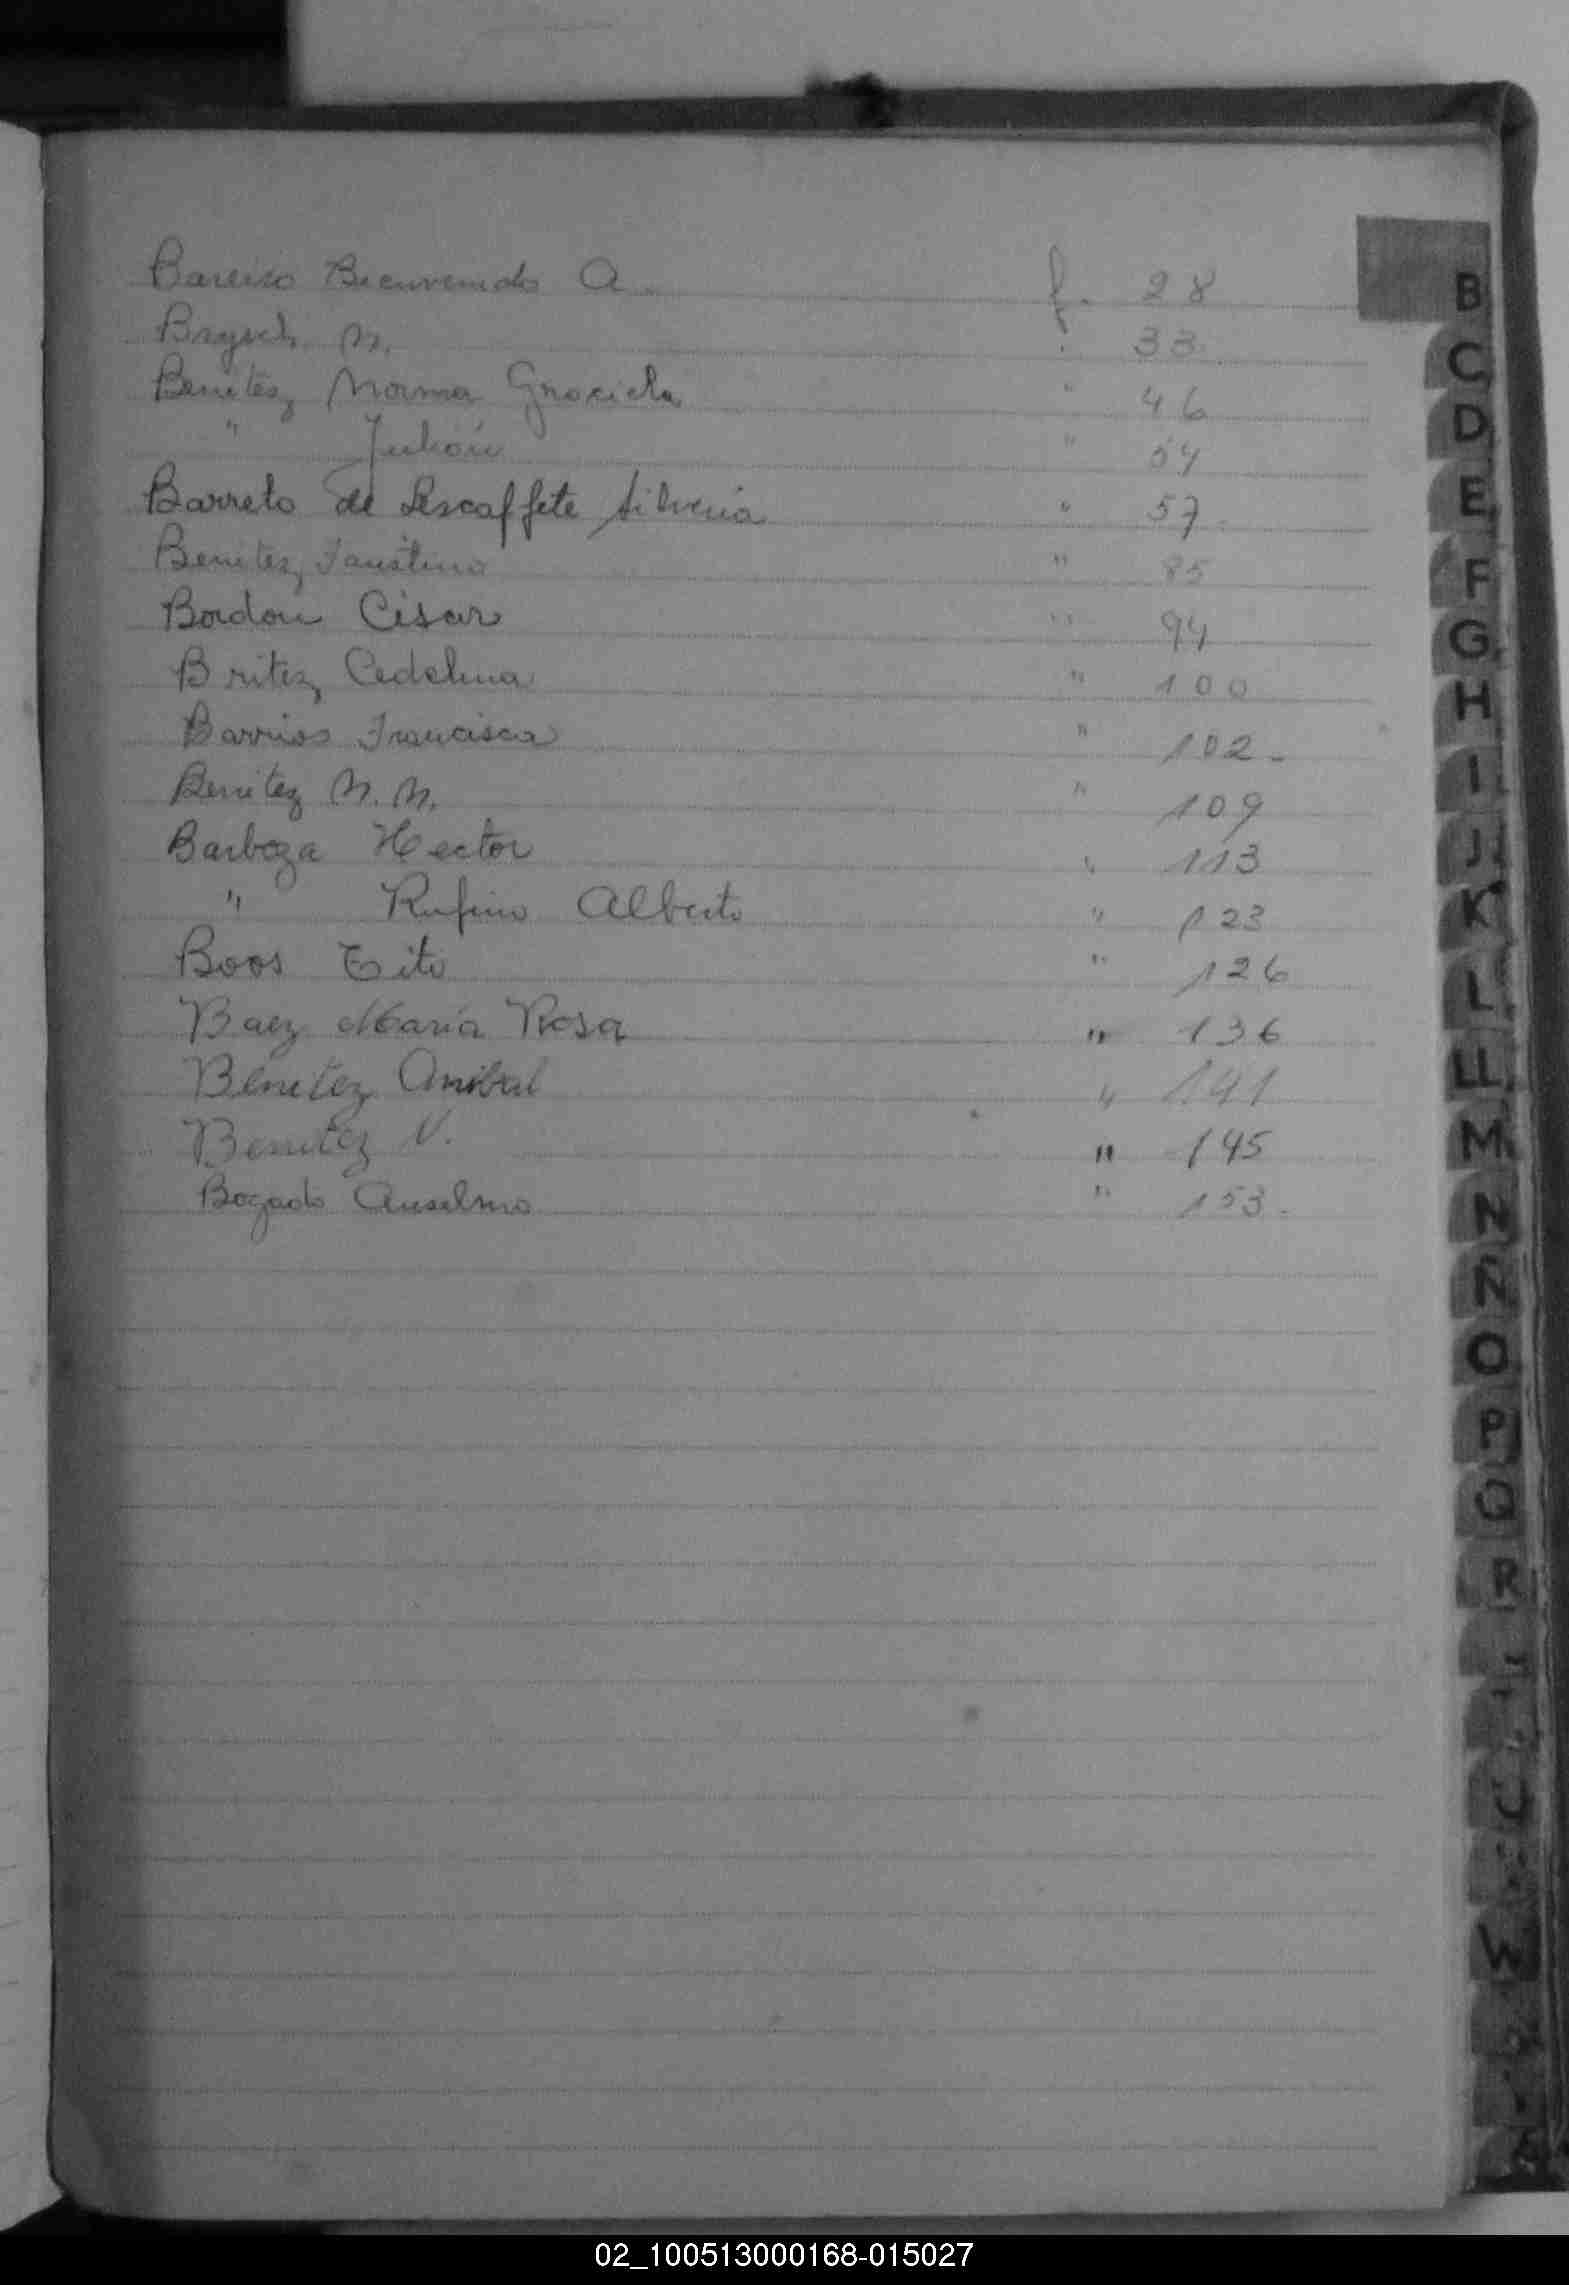 Bareiro Bienvenido A. f. 28
N. 33.
Benitez, Norma Graciela " 46
" Julián " 54
Barreto de Lescaffete Silveria " 57.
Benitez, Faustino " 85
Bordon César " 94
Britez, Cedelina " 100
Barrios Francisca " 102.
Benitez N. N. " 109
Barboza Hector " 113
" Rufino Alberto " 123
Boos Tito " 126
Baez María Rosa " 136
Benitez Anibal " 141
Benitez N. " 145
Bogado Anselmo " 153.
B
C
D
E
F
G
H
I
J
K
L
LL
M
N
Ñ
O
P
Q
R
U
W
02_100513000168-015027